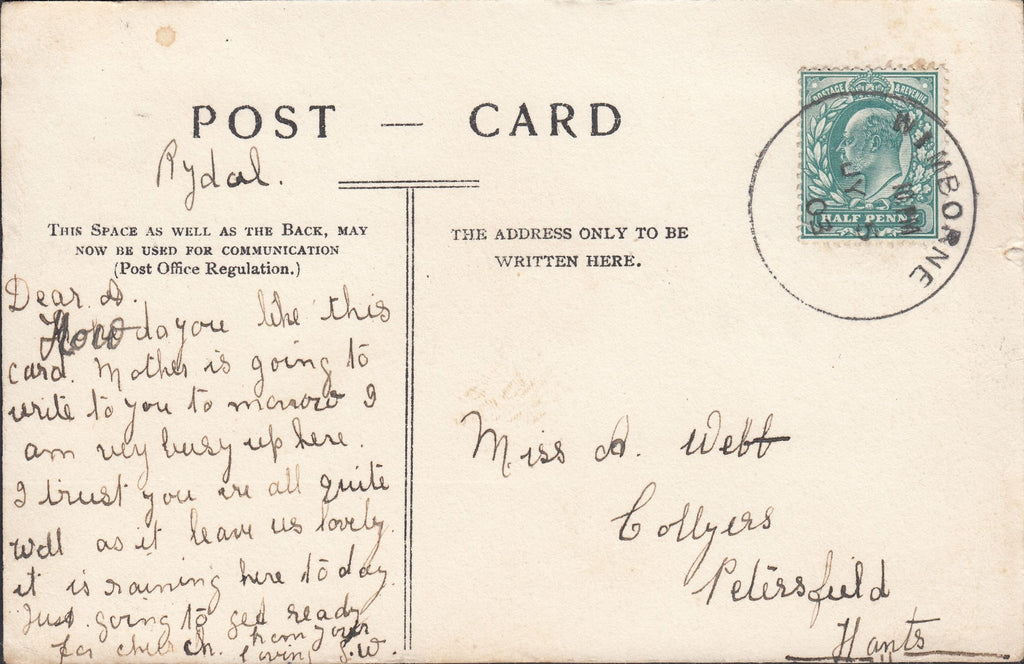 POST — CARD
Rydal.
THIS SPACE AS WELL AS THE BACK, MAY
NOW BE USED FOR COMMUNICATION
(Post Office Regulation.)
Dear A.
How do you like this
card. Mother is going to
write to you to morrow I
am very busy up here.
I trust you are all quite
well as it leave us lovely
it is raining here to day.
Just going to get ready
for church. from your
loving S.W.
THE ADDRESS ONLY TO BE
WRITTEN HERE.
POSTAGE & REVENUE
HALF PENNY
WIMBORNE
JY 5
Miss A. Webb
Collyers
Petersfield
Hants